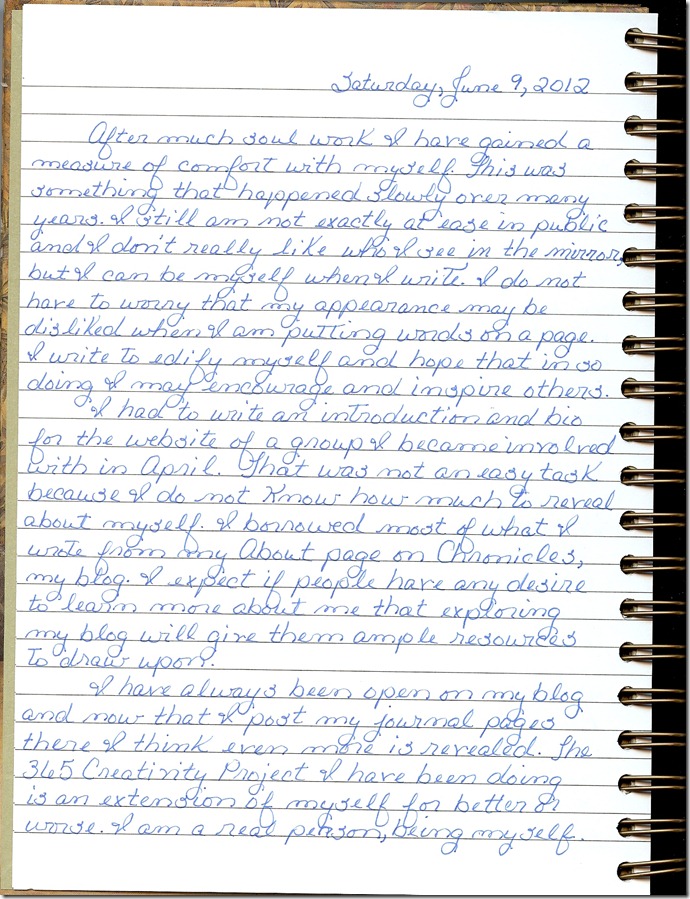 Saturday, June 9, 2012
After much soul work I have gained a
measure of comfort with myself. This was
something that happened slowly over many
years. I still am not exactly at ease in public
and I don't really like who I see in the mirror,
but I can be myself when I write. I do not
have to worry that my appearance may be
disliked when I am putting words on a page.
I write to edify myself and hope that in so
doing I may encourage and inspire others.
I had to write an introduction and bio
for the website of a group I became involved
with in April. That was not an easy task
because I do not know how much to reveal
about myself. I borrowed most of what I
wrote from my About page on Chronicles,
my blog. I expect if people have any desire
to learn more about me that exploring
my blog will give them ample resources
to draw upon.
I have always been open on my blog
and now that I post my journal pages
there I think even more is revealed. The
365 Creativity Project I have been doing
is an extension of myself for better or
worse. I am a real person, being myself.